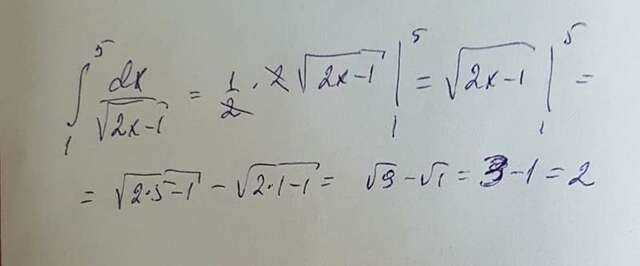 ∫₁⁵ dx/√(2x-1) = 1/2 · 2√(2x-1) |₁⁵ = √(2x-1) |₁⁵ =
= √(2·5-1) - √(2·1-1) = √9 - √1 = 3-1 = 2